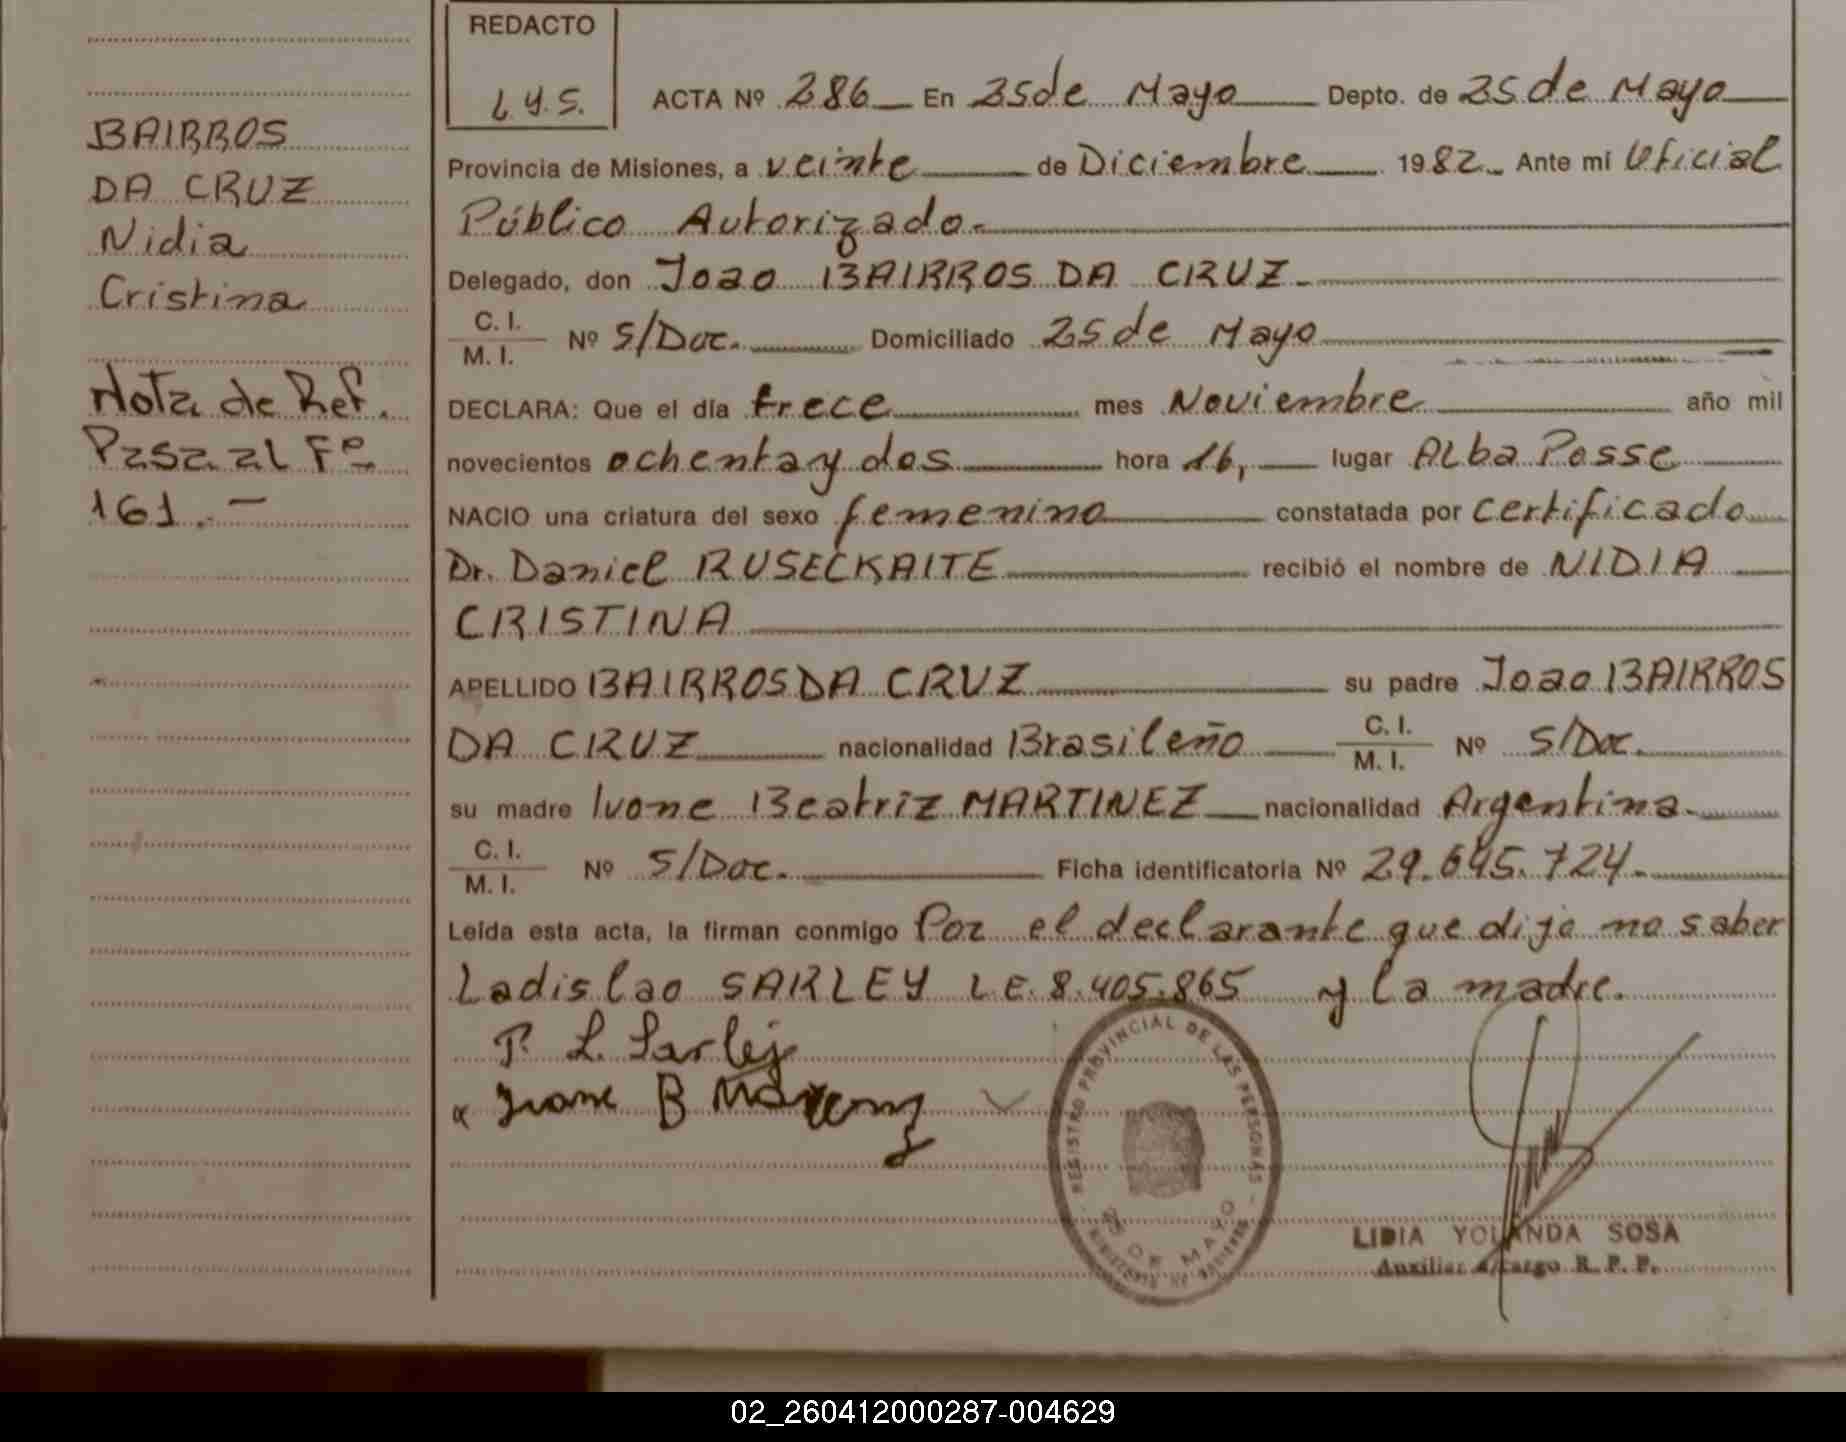 REDACTO
L.Y.S.
ACTA Nº 286 En 25 de Mayo Depto. de 25 de Mayo
Provincia de Misiones, a veinte de Diciembre 1982. Ante mí Oficial
Público Autorizado.
Delegado, don Joao BAIRROS DA CRUZ.
C. I.
M. I. Nº S/Doc. Domiciliado 25 de Mayo
DECLARA: Que el día trece mes Noviembre año mil
novecientos ochenta y dos hora 16, lugar Alba Posse
NACIO una criatura del sexo femenino constatada por certificado
Dr. Daniel RUSECKAITE recibió el nombre de NIDIA
CRISTINA
APELLIDO BAIRROS DA CRUZ su padre Joao BAIRROS
DA CRUZ nacionalidad Brasileño C. I. M. I. Nº S/Doc.
su madre Ivone Beatriz MARTINEZ nacionalidad Argentina.
C. I.
M. I. Nº S/Doc. Ficha identificatoria Nº 29.645.724.
Leída esta acta, la firman conmigo Por el declarante que dijo no saber
Ladislao SARLEY L.E. 8.405.865 y la madre.
P. L. Sarley
Ivone B
BAIRROS
DA CRUZ
Nidia
Cristina
Nota de Ref.
Pasa al Fº
161.-
REGISTRO PROVINCIAL DE LAS PERSONAS
25 DE MAYO
LIDIA YOLANDA SOSA
Auxiliar A/cargo R. P. P.
02_260412000287-004629